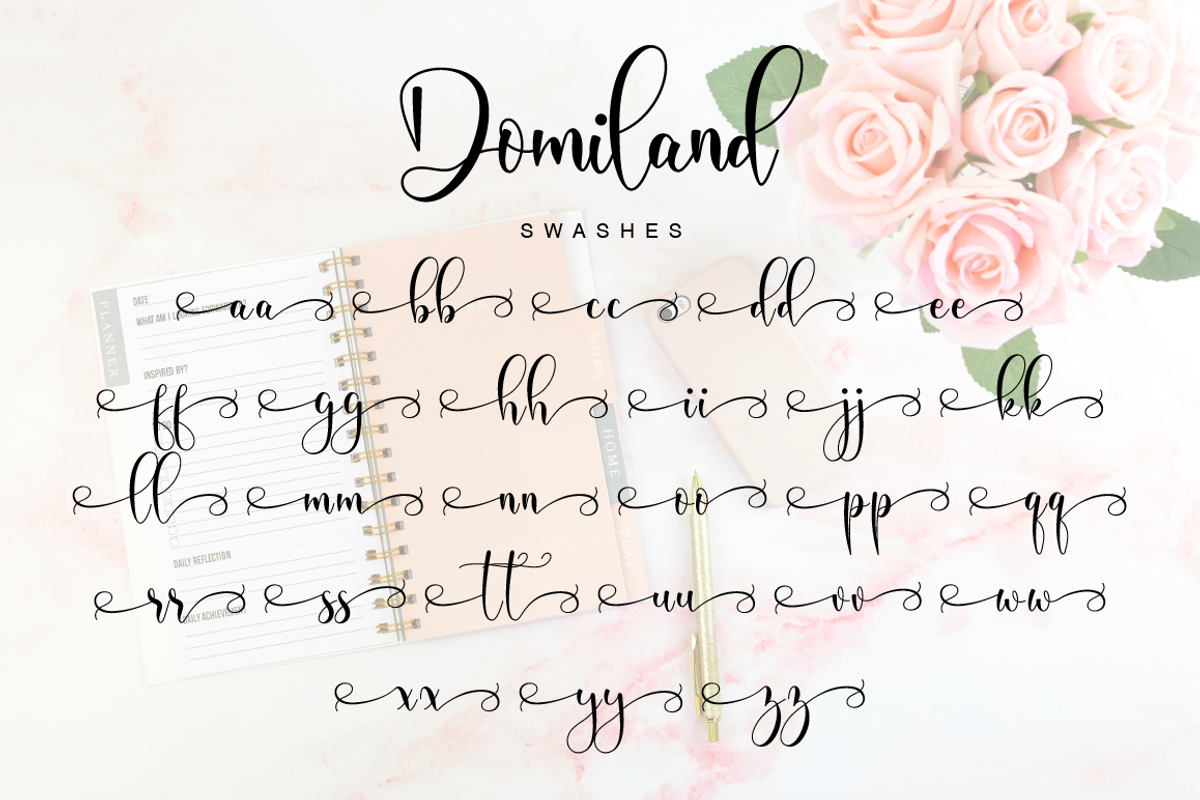 Domiland
SWASHES
aa bb cc dd ee
ff gg hh ii jj kk
ll mm nn oo pp qq
rr ss tt uu vv ww
xx yy zz
PLANNER
DATE
WHAT AM I LOOKING FORWARD
INSPIRED BY?
DAILY REFLECTION
DAILY ACHIEVEMENT
WORK
HOME